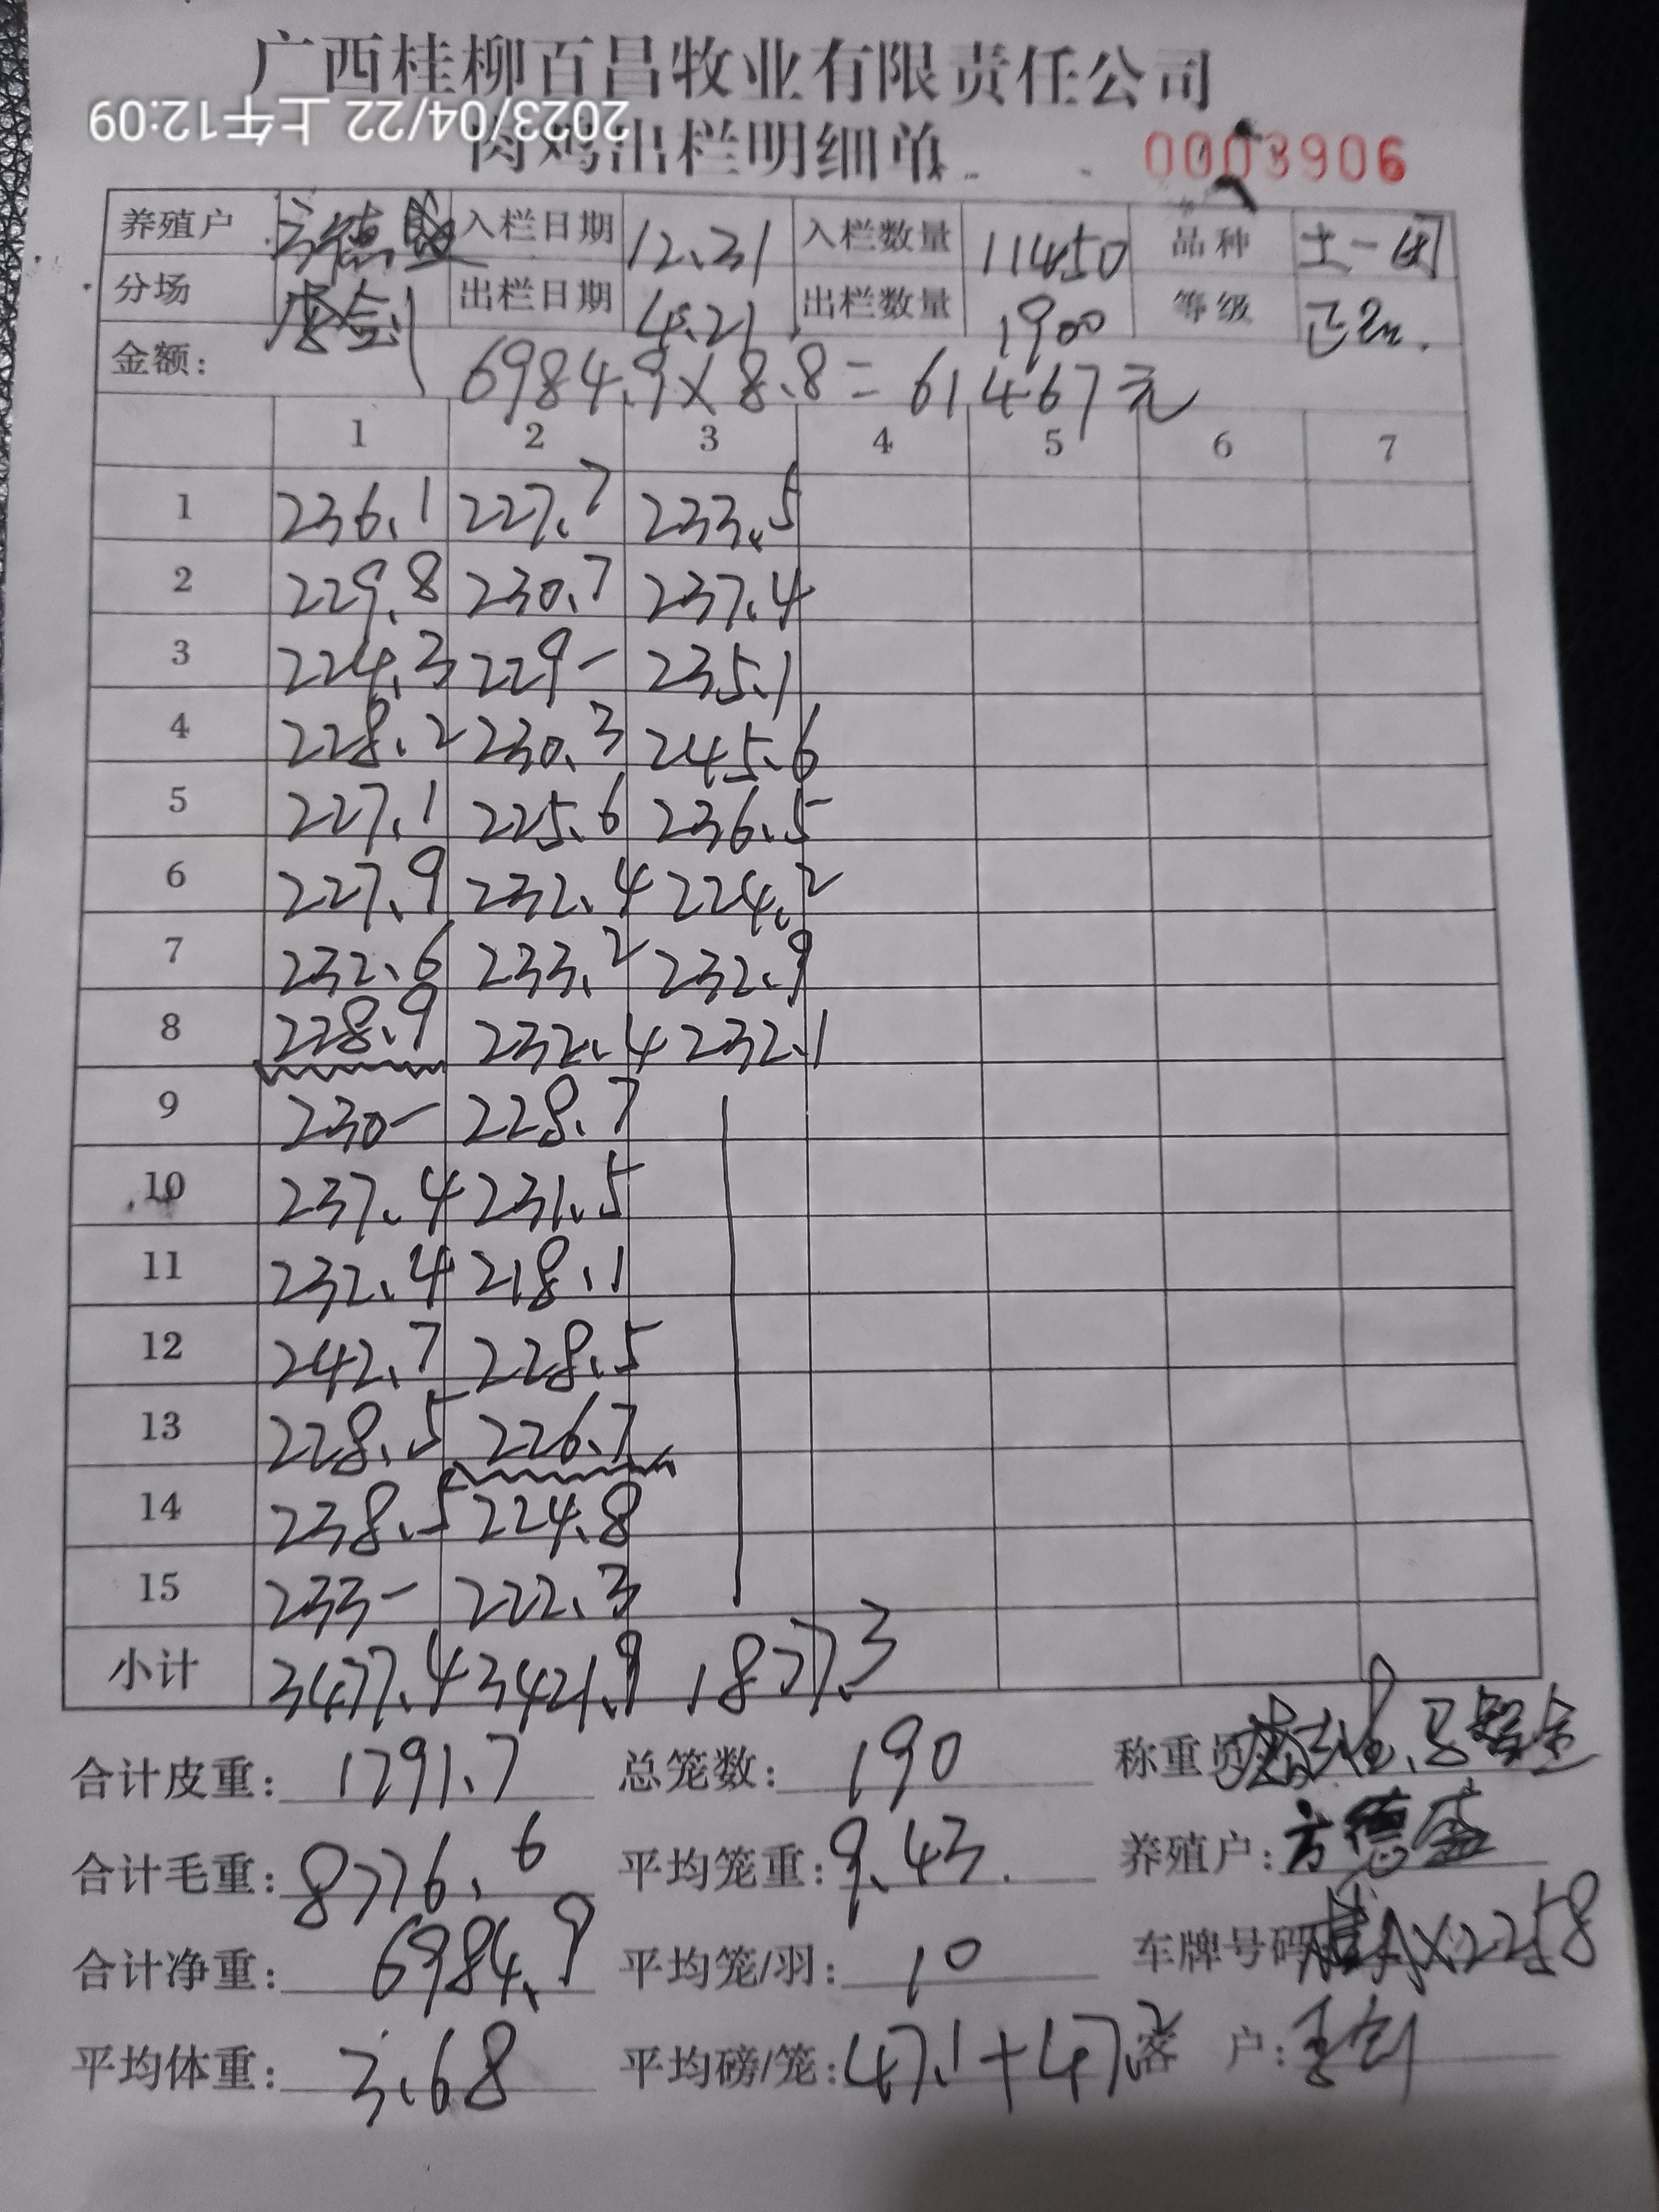 广西桂柳百昌牧业有限责任公司
2023/04/22 上午12:09
肉鸡出栏明细单
0003906
养殖户 方德盛 入栏日期 12.21 入栏数量 11450 品种 土一
分场 出栏日期 4.21 出栏数量 1900 等级 正
金额: 6984.9×8.8=61467元
1 2 3 4 5 6 7
1 236.1 227.7 233.5
2 229.8 230.7 237.4
3 224.3 229- 235.1
4 228.2 230.3 245.6
5 227.1 225.6 236.5
6 227.9 232.4 224.2
7 232.6 233.2 232.9
8 228.9 232.4 232.1
9 230- 228.7
10 237.4 231.5
11 232.4 218.1
12 242.7 228.5
13 228.5 226.7
14 238.5 224.8
15 233- 222.3
小计 3477.4 3421.9 1877.3
合计皮重: 1791.7 总笼数: 190 称重员
合计毛重: 8776.6 平均笼重: 9.43 养殖户: 方德盛
合计净重: 6984.9 平均笼/羽: 10 车牌号码 X2258
平均体重: 3.68 平均磅/笼: 47.1+47.2 客户: